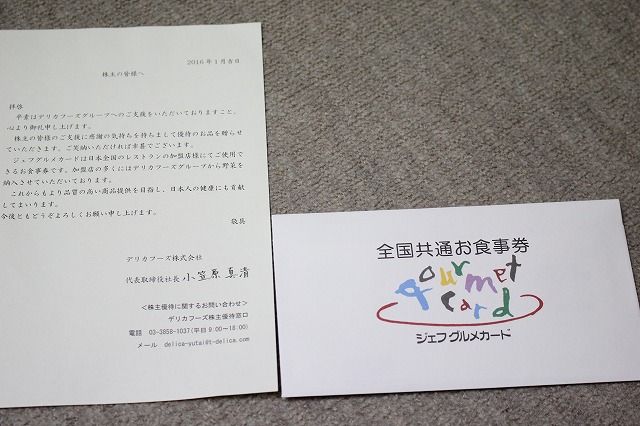 2016年1月吉日
株主の皆様へ
拝啓
平素はデリカフーズグループへのご支援をいただいておりますこと、
心より御礼申し上げます。
株主の皆様のご支援に感謝の気持ちを持ちまして優待のお品を贈らせ
ていただきます。ご笑納いただければ幸甚でございます。
ジェフグルメカードは日本全国のレストランの加盟店様にてご使用で
きるお食事券です。加盟店の多くにはデリカフーズグループから野菜を
納入させていただいております。
これからもより品質の高い商品提供を目指し、日本人の健康にも貢献
してまいります。
今後ともどうぞよろしくお願い申し上げます。
敬具
デリカフーズ株式会社
代表取締役社長 小笠原真清
<株主優待に関するお問い合わせ>
デリカフーズ株主優待窓口
電話 03-3858-1037(平日9:00~18:00)
メール delica-yutai@t-delica.com
全国共通お食事券
gourmet
card
ジェフグルメカード